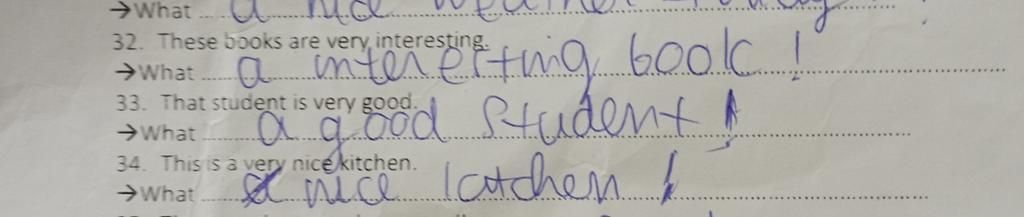 →What ... a nice weather today !
32. These books are very interesting.
→What ..... a interesting book !
33. That student is very good.
→What ..... a good student !
34. This is a very nice kitchen.
→What ..... a nice katchen !